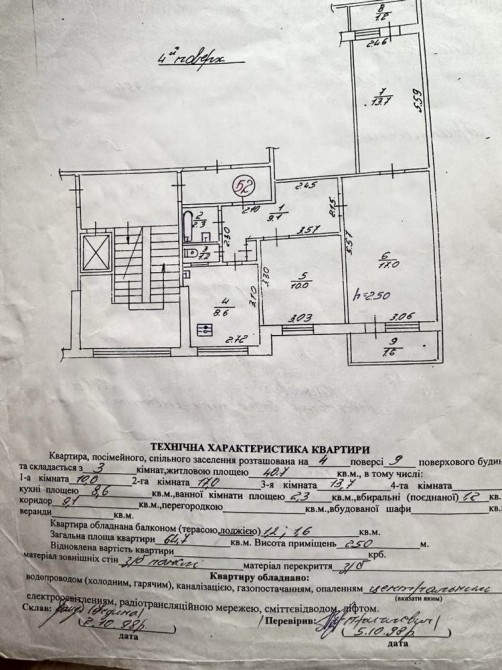 4й поверх
8
1.2
2.46
7
13.7
5.59
52
2.45
2.10
1
9.1
2.15
2
2.3
3.57
2.30
3
1.2
5.57
6
17.0
3.30
5
10.0
4
8.6
3.10
h=2.50
3.03
3.06
2.72
9
1.6
ТЕХНІЧНА ХАРАКТЕРИСТИКА КВАРТИРИ
Квартира, посімейного, спільного заселення розташована на 4 поверсі 9 поверхового будин
та складається з 3 кімнат,житловою площею 40.7 кв.м., в тому числі:
1-а кімната 10.0 2-га кімната 17.0 3-я кімната 13.7 4-та кімната
кухні площею 8,6 кв.м.,ванної кімнати площею 2,3 кв.м.,вбиральні (поєднаної) 1.2 кв.
коридор 9,1 кв.м.,перегородкою кв.м.,вбудованої шафи кв.м.
веранди кв.м.
Квартира обладнана балконом (терасою,лоджією) 1,2 і 1,6 кв.м.
Загальна площа квартири 64,7 кв.м. Висота приміщень 2.50 м.
Відновлена вартість квартири крб.
матеріал зовнішніх стін з/б панелі матеріал перекриття з/б
Квартиру обладнано:
водопроводом (холодним, гарячим), каналізацією, газопостачанням, опаленням центральним
(вказати яким)
електроосвітленням, радіотрансляційною мережею, сміттєвідводом, ліфтом.
Склав: Перевірив:
2.10.98р 5.10.98р
дата дата